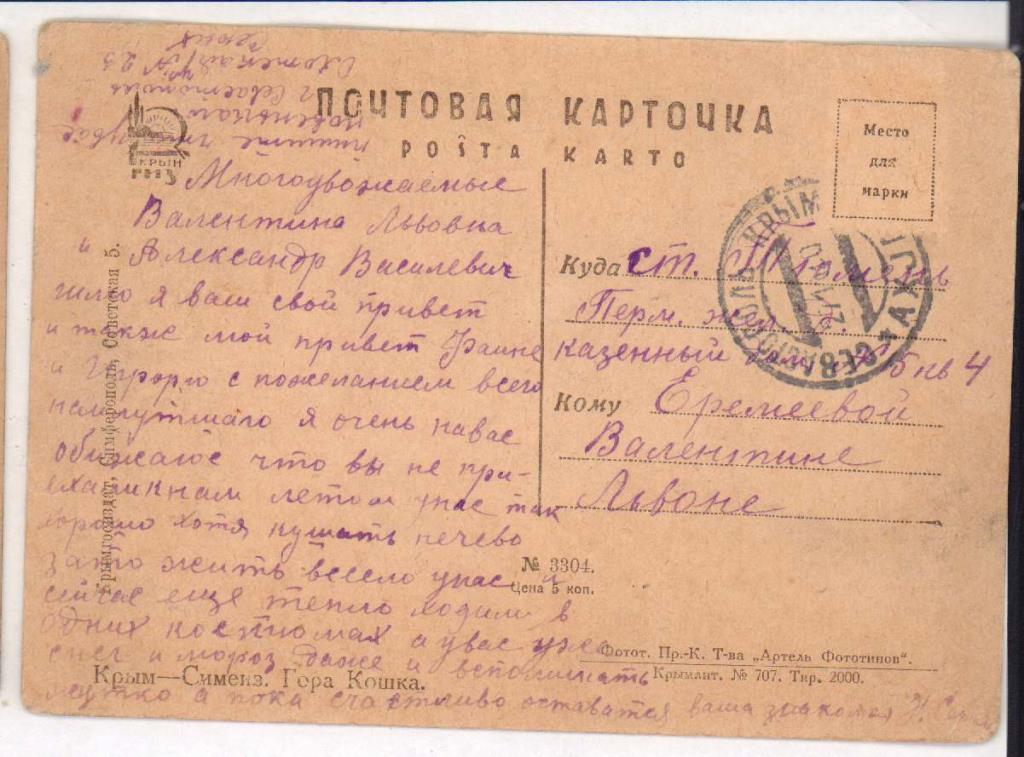 ПОЧТОВАЯ КАРТОЧКА
POŜTA KARTO
КРЫМ
ГИЗ
Место
для
марки
пишите
г Севастополь
№ 23
Многоувожаемые
Валентина Львовна
и Александр Василевич
шлю я ваш свой привет
и также мой привет Фаине
и с пожеланием всего
я очень навас
обижаюс что вы не при-
ехаликнам летом унас так
хорошо хотя кушать нечево
зато жить весело унас и
сейчас еще тепло ходим в
одних костюмах а увас уже
снег и мороз даже и вспоминать
жутко а пока счастливо оставатся ваша знакомая Н.
Куда ст. Тюмень
Перм. жел.
казенный дом
Кому Еремеевой
Валентине
Львоне
СЕВАСТОПОЛЬ КРЫМ
Крымгосиздат, Симферополь, Советская 5.
№ 3304.
Цена 5 коп.
Фотот. Пр.-К. Т-ва „Артель Фототипов“.
Крымлит. № 707. Тир. 2000.
Крым—Симеиз. Гора Кошка.